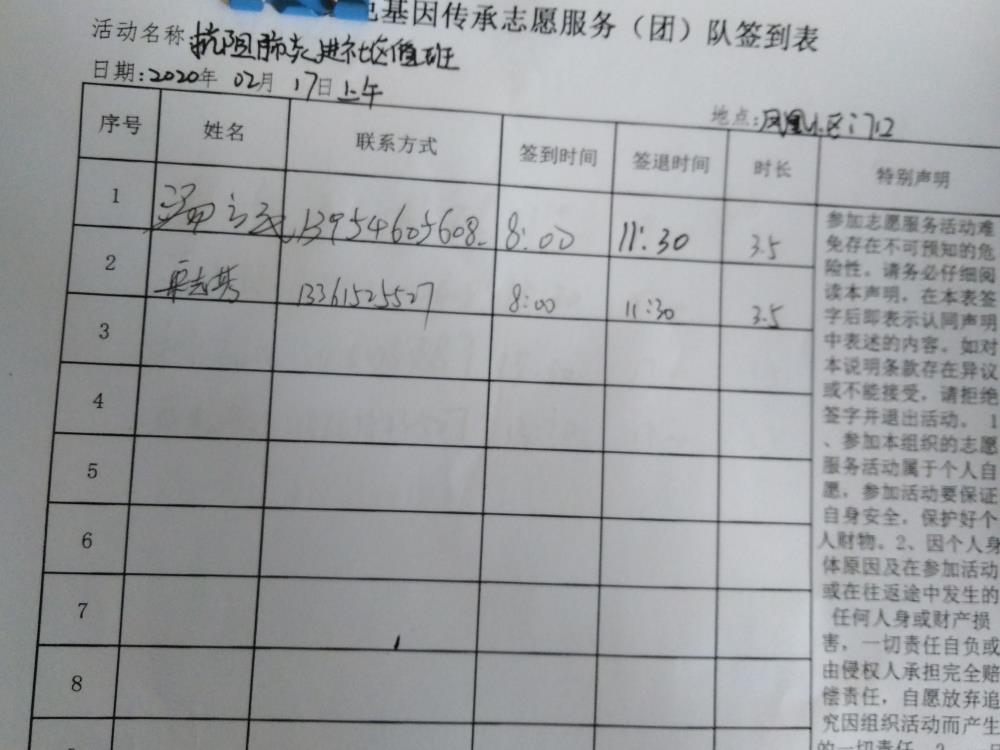 基因传承志愿服务（团）队签到表
活动名称 抗阻肺炎进社区值班
日期：2020年 02月 17日上午
地点：凤凰小区门口
序号 姓名 联系方式 签到时间 签退时间 时长 特别声明
1 13954605608 8:00 11:30 3.5
2 13361525527 8:00 11:30 3.5
3
4
5
6
7
8
参加志愿服务活动难
免存在不可预知的危
险性。请务必仔细阅
读本声明。在本表签
字后即表示认同声明
中表述的内容。如对
本说明条款存在异议
或不能接受，请拒绝
签字并退出活动。 1
、参加本组织的志愿
服务活动属于个人自
愿，参加活动要保证
自身安全，保护好个
人财物。2、因个人身
体原因及在参加活动
或在往返途中发生的
任何人身或财产损
害，一切责任自负或
由侵权人承担完全赔
偿责任，自愿放弃追
究因组织活动而产生
的一切责任